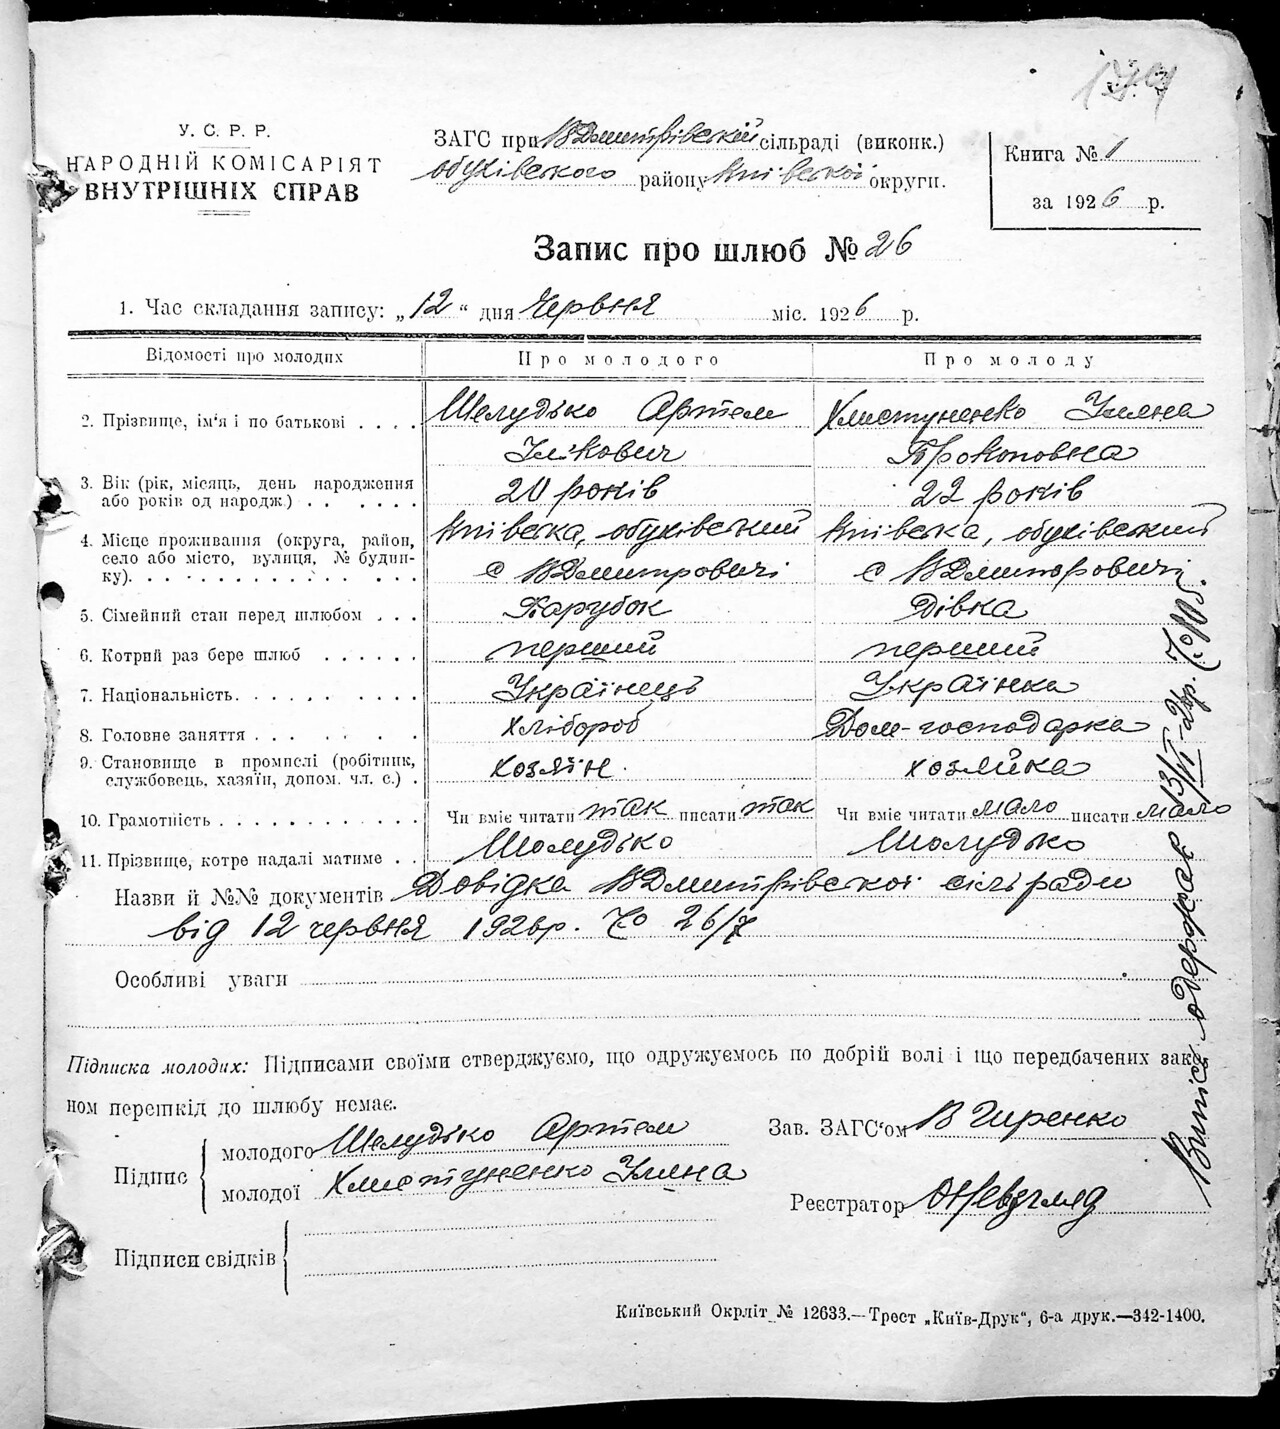 У. С. Р. Р.
НАРОДНІЙ КОМІСАРІЯТ
ВНУТРІШНІХ СПРАВ
ЗАГС при ВДмитрівській сільраді (виконк.)
обухівського району Київської округи.
Книга № 1
за 1926 р.
Запис про шлюб № 26
1. Час складання запису: „12“ дня Червня міс. 1926 р.
Відомості про молодих Про молодого Про молоду
2. Прізвище, ім'я і по батькові . . . . Шелудько Артем Хлистуненко Уляна
Ілікович Прокоповна
3. Вік (рік, місяць, день народження
або років од народж.) . . . . . . 20 років 22 років
4. Місце проживання (округа, район, Київська, обухівський Київська, обухівський
село або місто, вулиця, № будин-
ку). с ВДмитровичі с ВДмитровичі
5. Сімейний стан перед шлюбом . . . Парубок Дівка
6. Котрий раз бере шлюб . . . . . . перший перший
7. Національність. Українець Українка
8. Головне заняття . . . хлібороб Дом-господарка
9. Становище в промислі (робітник,
службовець, хазяїн, допом. чл. с.) . хозяїн. хозяйка
10. Грамотність . . . Чи вміє читати так писати так Чи вміє читати мало писати мало
11. Прізвище, котре надалі матиме . . Шолудько Шолудько
Назви й №№ документів Довідка ВДмитрівської сільради
від 12 червня 1926р. № 26/7
Особливі уваги
Підписка молодих: Підписами своїми стверджуємо, що одружуємось по добрій волі і що передбачених зако-
ном перешкід до шлюбу немає.
Підпис
молодого Шелудько Артем
молодої Хлистуненко Уляна
Зав. ЗАГС'ом В Гиренко
Реєстратор
Підписи свідків
Київський Окрліт № 12633.—Трест „Київ-Друк“, 6-а друк.—342-1400.
Випись одержав 13/VI-26р.